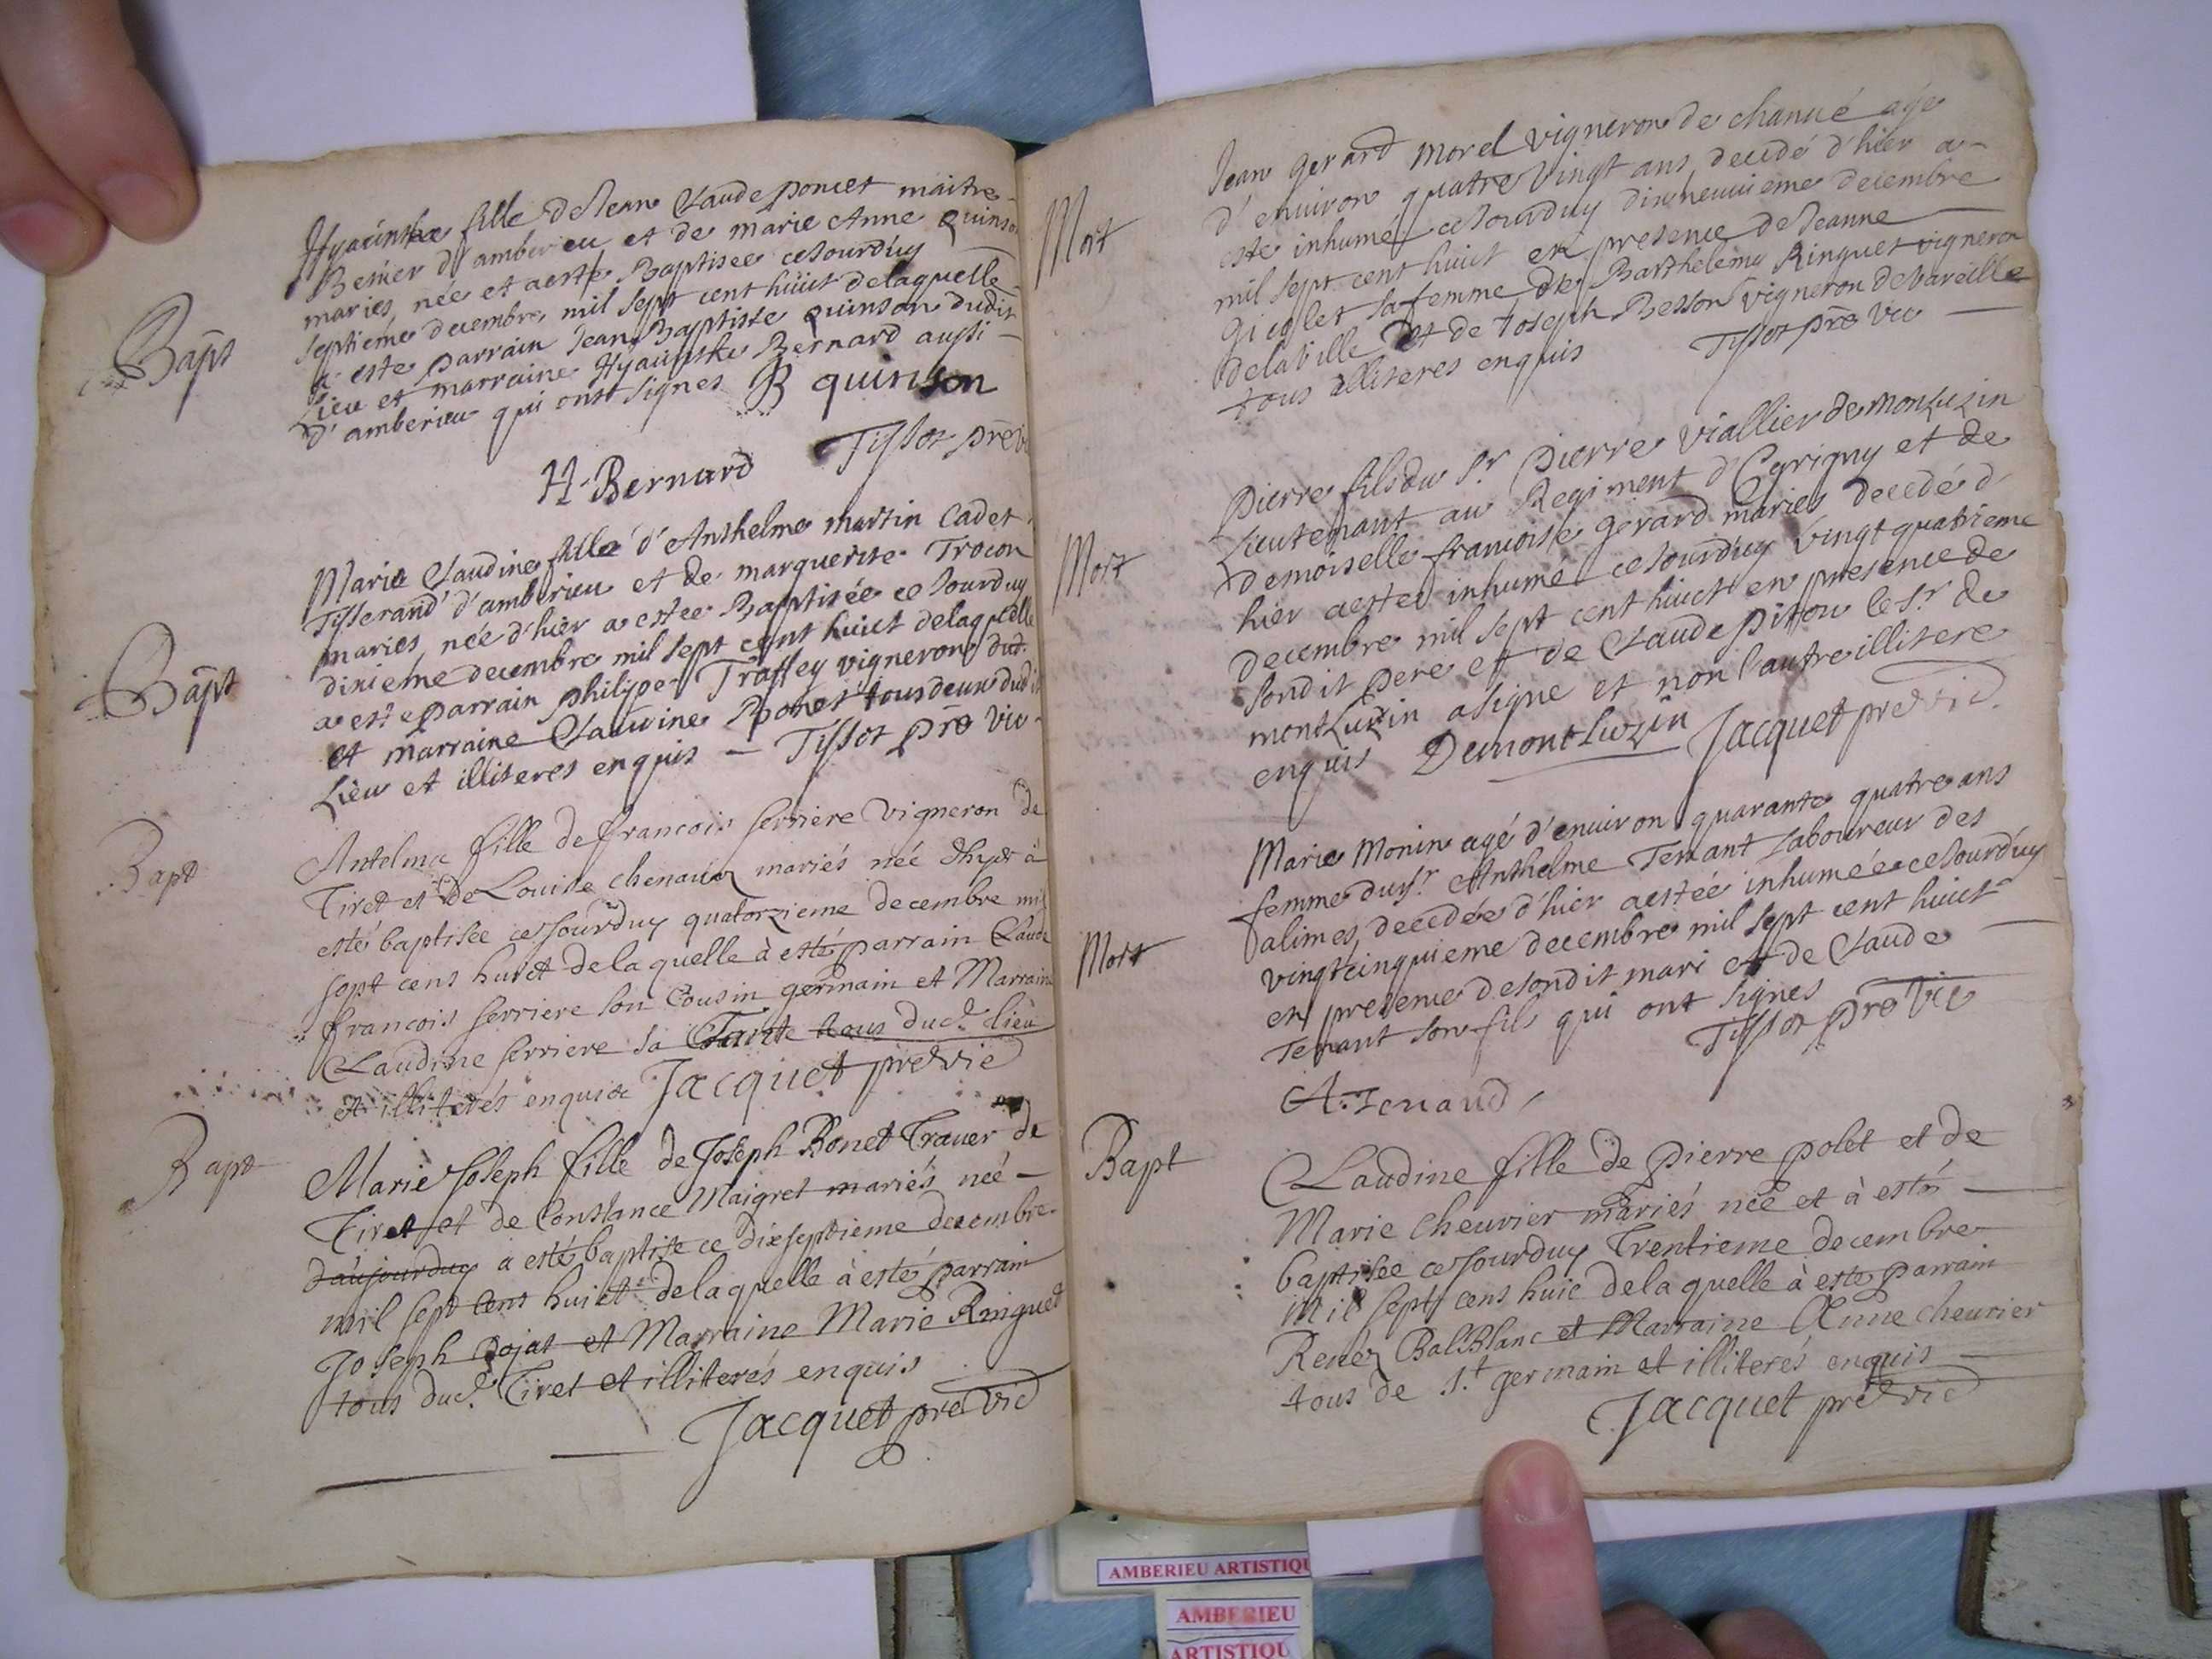 Bapt
Hyacinthe fille de Jean Claude poncet maitre
d'amberieu et de marie Anne Quinson
mariés, née et a esté Baptisee ce Jourduy
septieme decembre mil sept cent huict de laquelle
a esté parrain Jean Baptiste quinson dudit
Lieu et marraine Hyacinthe Bernard aussi
d'amberieu qui ont signes B quinson
H. Bernard Tissot pre vi
Bapt
Marie Claudine fille d'Anthelme martin Cadet
Tisserand d'amberieu et de marguerite Trocon
mariés, née d'hier a estee Baptisée ce Jourduy
dixieme decembre mil sept cent huict de laquelle
a esté parrain philippe Traffey vigneron dud.
et marraine Claudine Bonet tous deux dudit
Lieu et illiteres enquis — Tissot pre vic
Bapt
Antelma fille de francois serriere vigneron de
Tiret et de Louise chenavier mariés née d'hyer à
esté baptisée ce Jourduy quatorzieme decembre mil
sept cens huict de la quelle à esté parrain Claude
francois serriere son Cousin germain et Marraine
Claudine serriere sa Tante tous dud. lieu
et illiterés enquis Jacquet pre vic
Bapt
Marie Joseph fille de Joseph Bonet Traver de
Tiret et de Constance Maigret mariés née
d'aujourduy a esté baptise ce dixseptieme decembre
mil sept cens huict de la quelle à esté parrain
Joseph Cojat et Marraine Marie Ringuet
tous dud. Tiret et illiterés enquis
Jacquet pre vic
Mort
Jean gerard morel vigneron de chanué agé
d'enuiron quatre vingt ans, decedé d'hier a
esté inhumé ce Jourduy dixneuuieme decembre
mil sept cent huict en presence de Jeanne
sa femme de Barthelemy Ringuet vigneron
de la Ville et de Joseph Besson vigneron de Vareille
tous illiteres enquis Tissot pre vic
Mort
Pierre fils du Sr Pierre Viallier de monluzin
Lieutenant au Regiment d' et de
demoiselle francoise gerard mariés decedé d'
hier a esté inhumé ce Jourduy vingt quatrieme
decembre mil sept cent huict en presence de
sondit pere et de Claude Piton le Sr de
montLuzin a signé et non l'autre illitere
enquis Demontluzin Jacquet pre vic
Mort
Marie Monin agé d'enuiron quarante quatre ans
femme du Sr Anthelme Tenant Laboureur des
alimes, decedée d'hier a estée inhumée ce Jourduy
vingtcinquieme decembre mil sept cent huict
en presence de sondit mari et de Claude
Tenant son fils qui ont signes
Tissot pre Vic
A. Tenaud
Bapt
Claudine fille de pierre polet et de
Marie cheurier mariés née et à esté
baptisée ce Jourduy Trentieme decembre
Mil sept cens huic de la quelle à este parrain
René BalBlanc et Marraine Anne cheurier
tous de St germain et illiterés enquis
Jacquet pre vic
AMBERIEU ARTISTIQU
AMBERIEU
ARTISTIQU